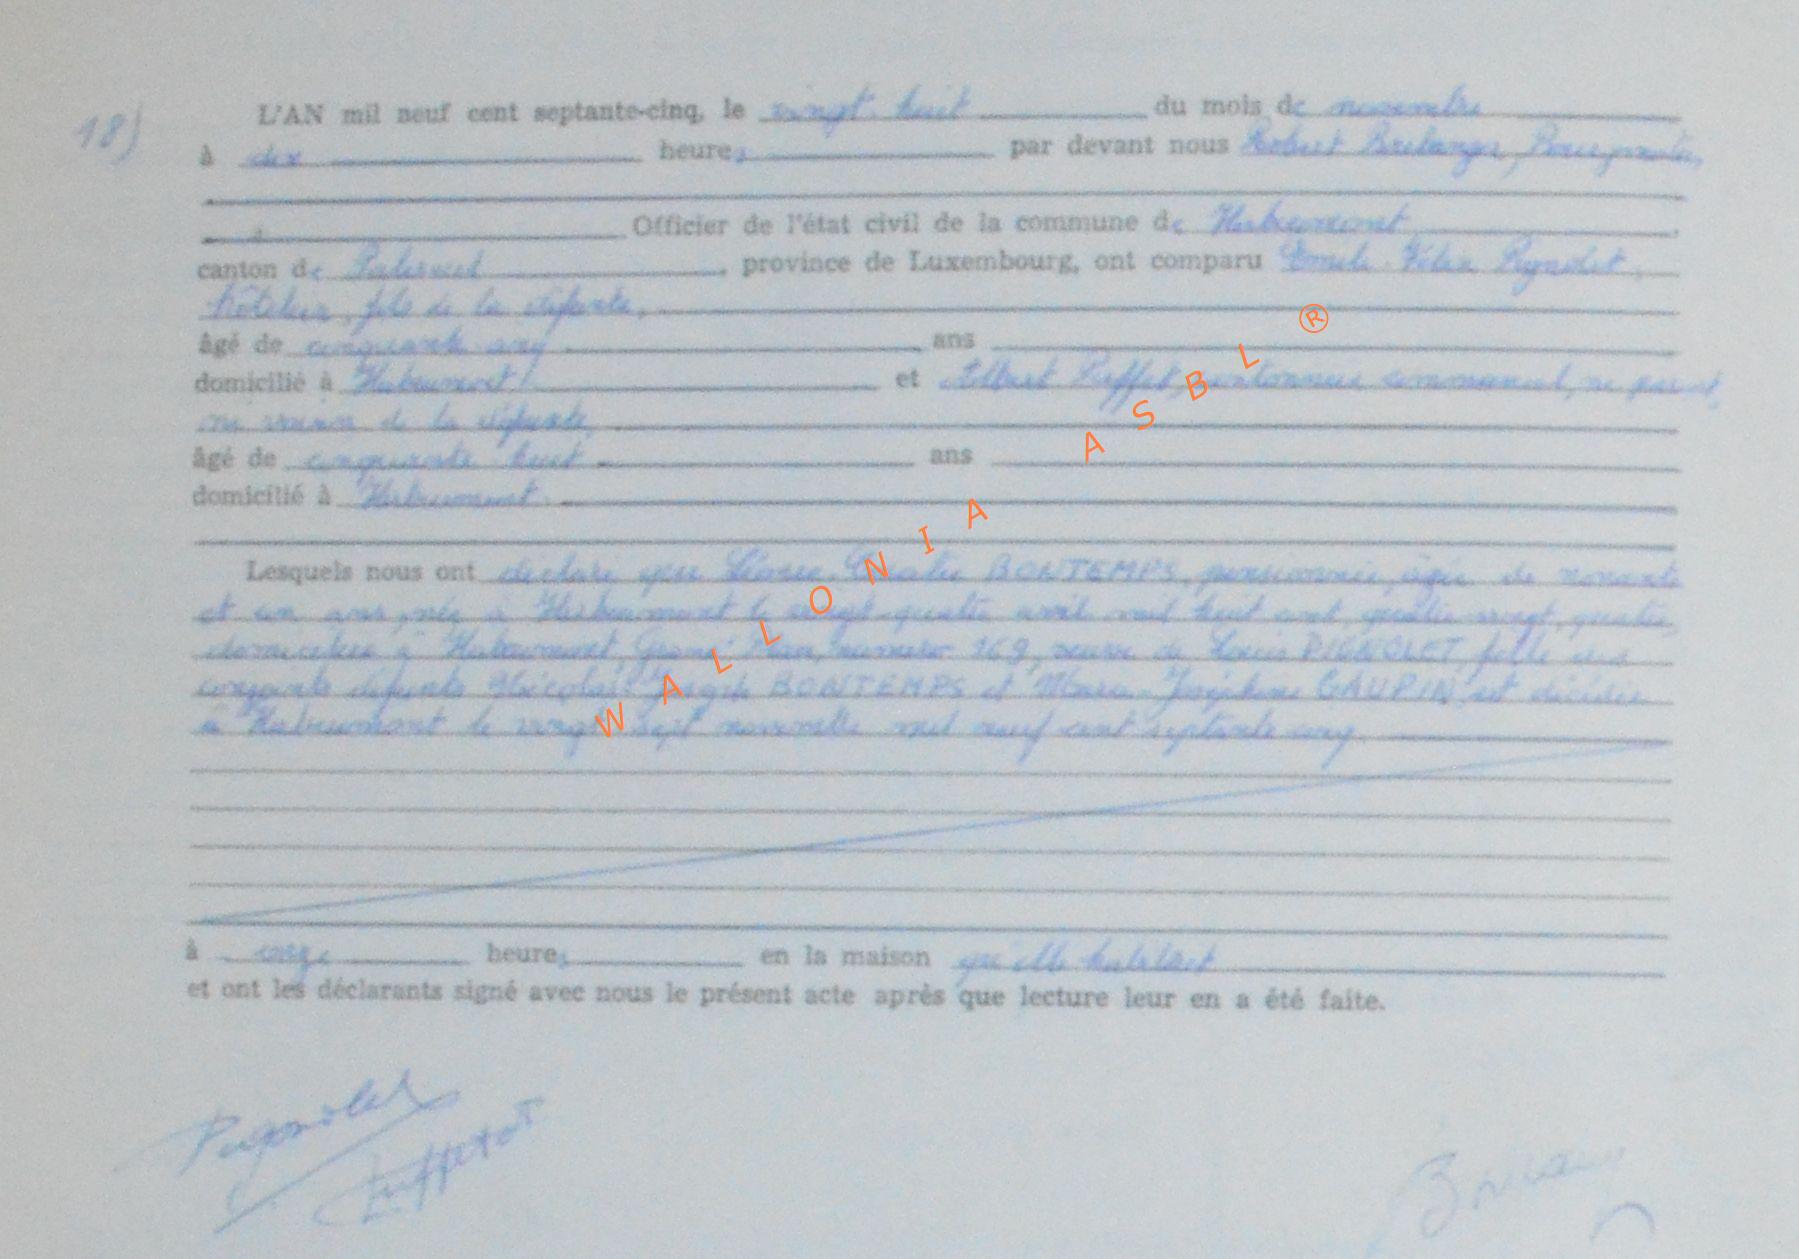 18)
L'AN mil neuf cent septante-cinq, le vingt-huit du mois de novembre
à dix heures par devant nous Robert Boulanger, Bourgmestre,
Officier de l'état civil de la commune de Herbeumont,
canton de Paliseul, province de Luxembourg, ont comparu Emile Félix Pignolet,
hôtelier, fils de la défunte,
âgé de cinquante cinq ans
domicilié à Herbeumont et Albert cantonnier communal, ni parent,
ni voisin de la défunte,
âgé de cinquante huit ans
domicilié à Herbeumont.
Lesquels nous ont déclaré que BONTEMPS, pensionnée, âgée de nonante
et un ans, née à Herbeumont le vingt-quatre avril mil huit cent quatre vingt quatre,
domiciliée à Herbeumont, numéro 169, veuve de Louis PIGNOLET, fille des
conjoints défunts Nicolas Joseph BONTEMPS et Marie Joséphine GAUPIN, est décédée
à Herbeumont le vingt sept novembre mil neuf cent septante cinq
à onze heures en la maison qu'elle habitait
et ont les déclarants signé avec nous le présent acte après que lecture leur en a été faite.
Pignolet
WALLONIA ASBL ®